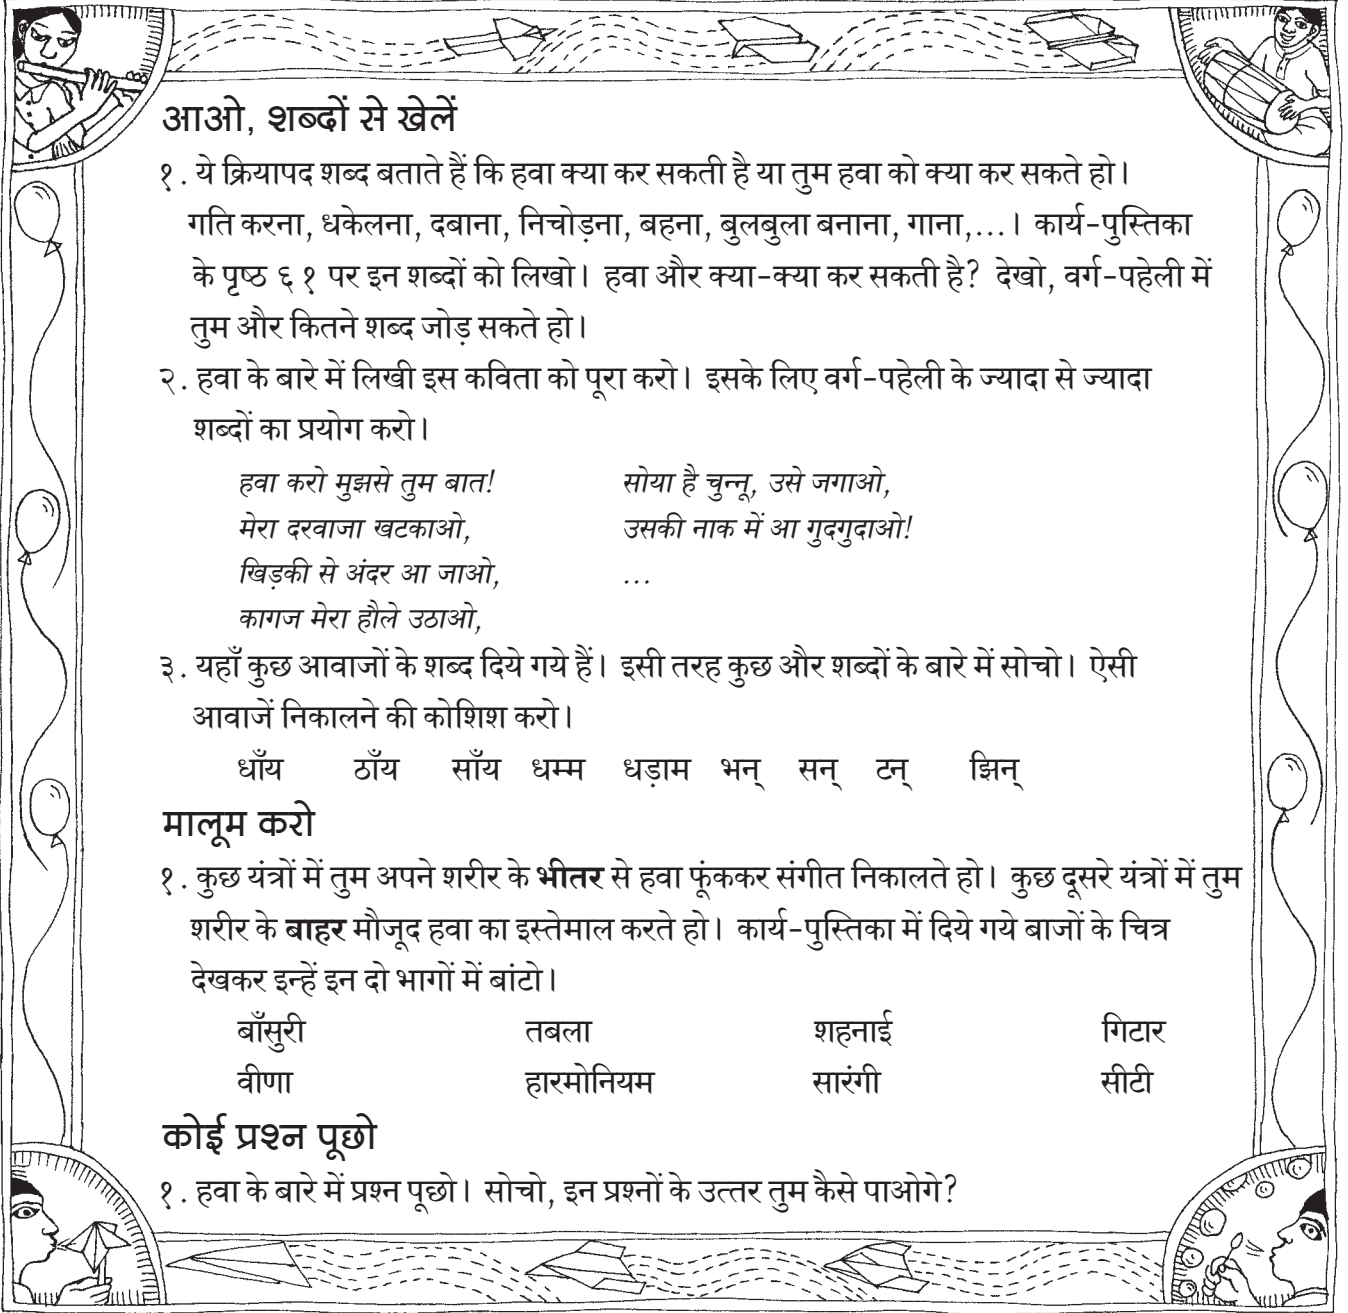 आओ, शब्दों से खेलें
१. ये क्रियापद शब्द बताते हैं कि हवा क्या कर सकती है या तुम हवा को क्या कर सकते हो।
गति करना, धकेलना, दबाना, निचोड़ना, बहना, बुलबुला बनाना, गाना,...। कार्य-पुस्तिका
के पृष्ठ ६१ पर इन शब्दों को लिखो। हवा और क्या-क्या कर सकती है? देखो, वर्ग-पहेली में
तुम और कितने शब्द जोड़ सकते हो।
२. हवा के बारे में लिखी इस कविता को पूरा करो। इसके लिए वर्ग-पहेली के ज्यादा से ज्यादा
शब्दों का प्रयोग करो।
हवा करो मुझसे तुम बात!
मेरा दरवाजा खटकाओ,
खिड़की से अंदर आ जाओ,
कागज मेरा हौले उठाओ,
सोया है चुन्नू, उसे जगाओ,
उसकी नाक में आ गुदगुदाओ!
...
३. यहाँ कुछ आवाजों के शब्द दिये गये हैं। इसी तरह कुछ और शब्दों के बारे में सोचो। ऐसी
आवाजें निकालने की कोशिश करो।
धाँय ठाँय साँय धम्म धड़ाम भन् सन् टन् झिन्
मालूम करो
१. कुछ यंत्रों में तुम अपने शरीर के भीतर से हवा फूंककर संगीत निकालते हो। कुछ दूसरे यंत्रों में तुम
शरीर के बाहर मौजूद हवा का इस्तेमाल करते हो। कार्य-पुस्तिका में दिये गये बाजों के चित्र
देखकर इन्हें इन दो भागों में बांटो।
बाँसुरी तबला शहनाई गिटार
वीणा हारमोनियम सारंगी सीटी
कोई प्रश्न पूछो
१. हवा के बारे में प्रश्न पूछो। सोचो, इन प्रश्नों के उत्तर तुम कैसे पाओगे?